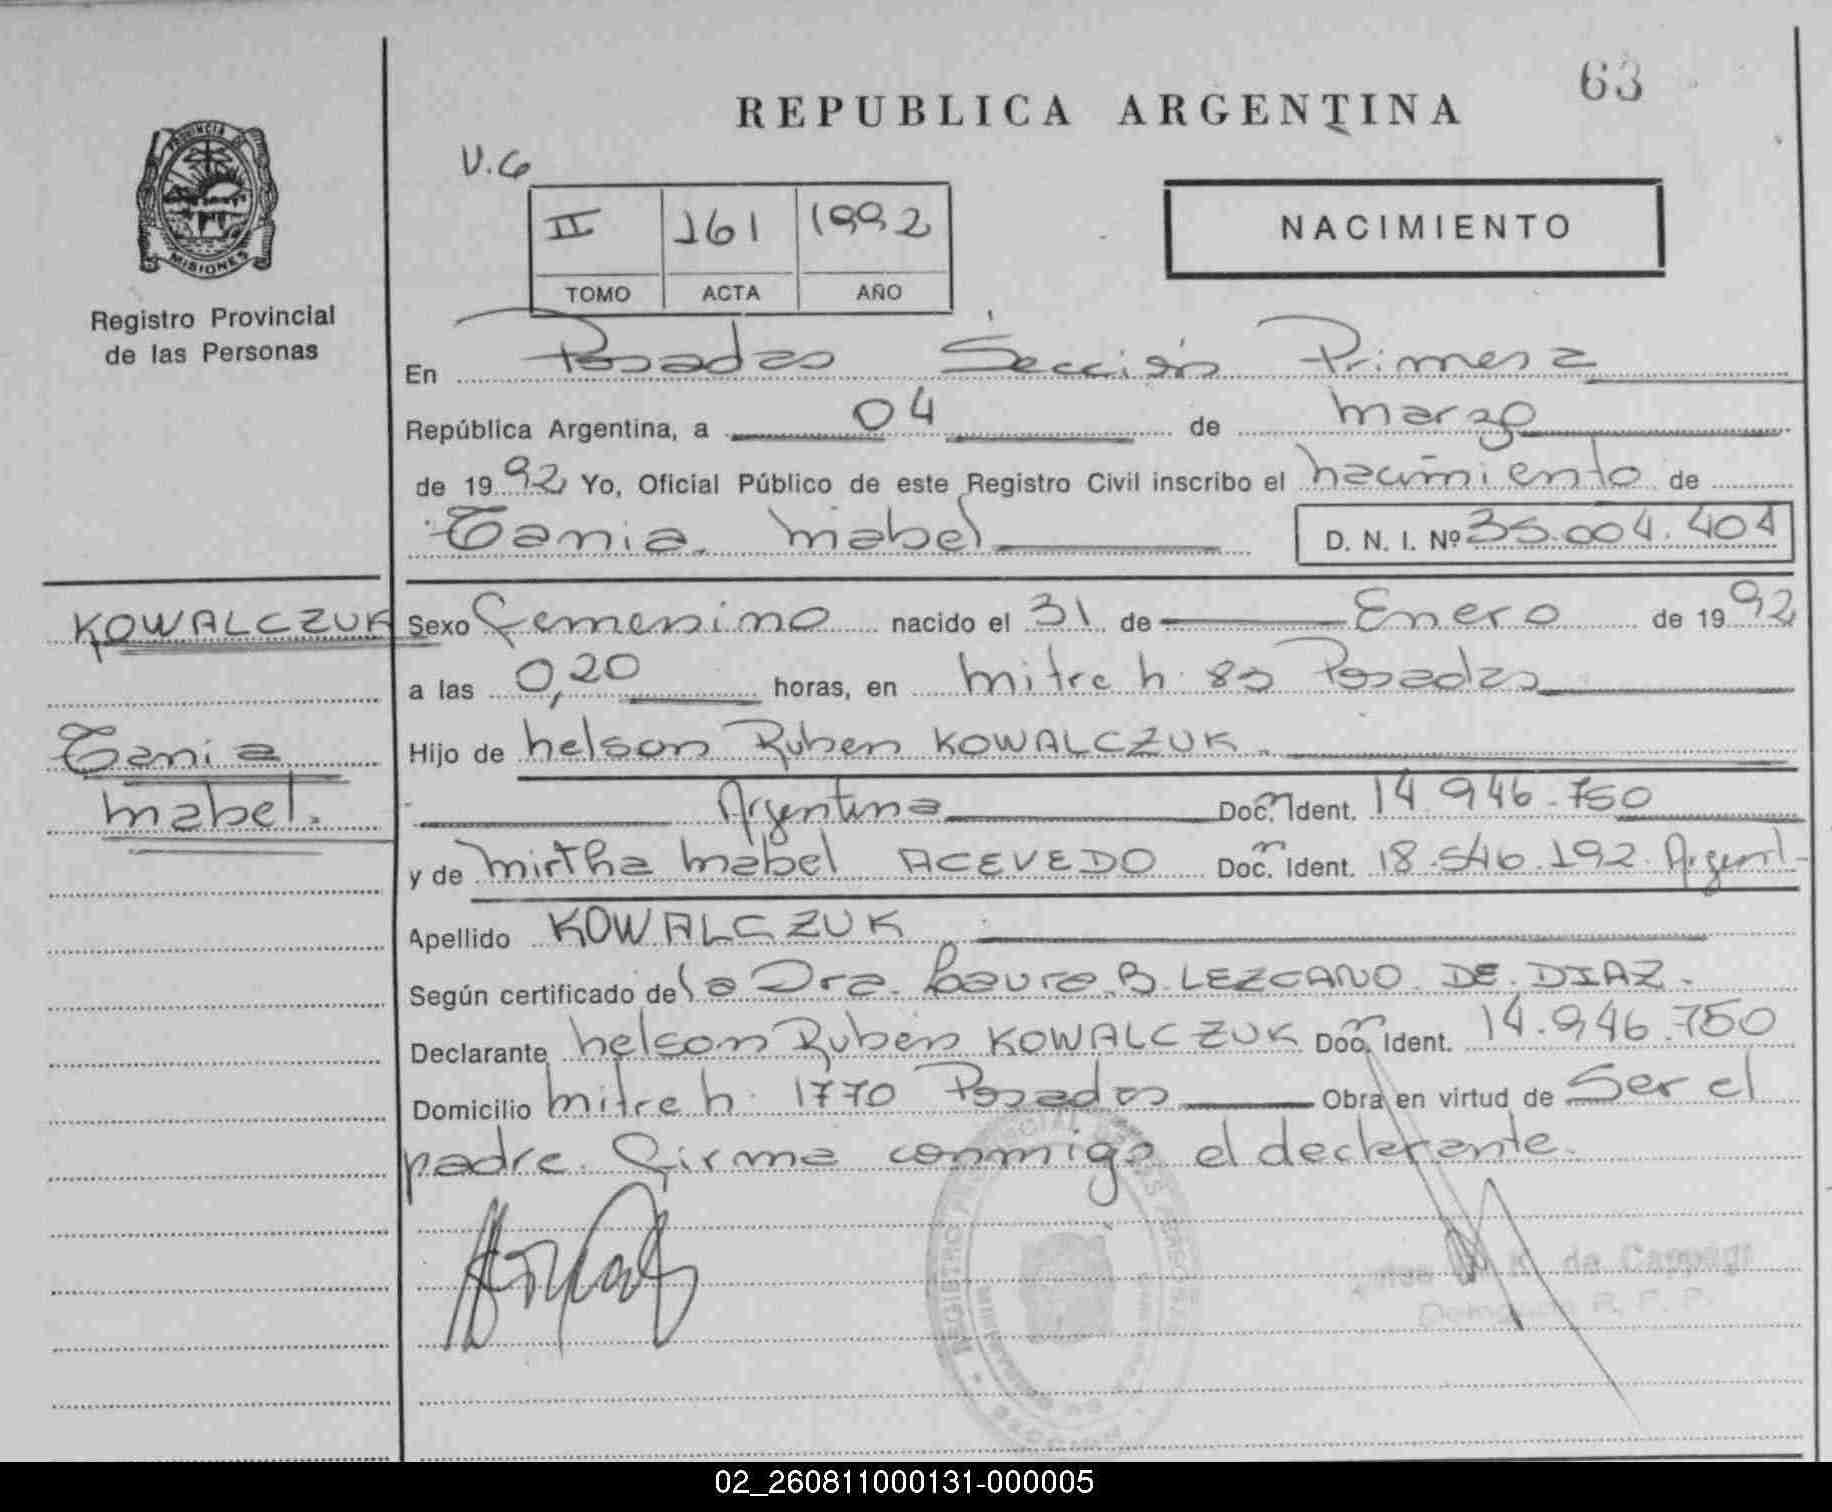 63
REPUBLICA ARGENTINA
V.G
II 161 1992
TOMO ACTA AÑO
NACIMIENTO
PROVINCIA DE
MISIONES
Registro Provincial
de las Personas
En Posadas Sección Primera
República Argentina, a 04 de marzo
de 1992 Yo, Oficial Público de este Registro Civil inscribo el nacimiento de
Tania Mabel D. N. I. Nº 35.004.404
KOWALCZUK
Tania
Mabel.
Sexo Femenino nacido el 31 de Enero de 1992
a las 0,20 horas, en Mitre N 83 Posadas
Hijo de Nelson Ruben KOWALCZUK
Argentina Doc. Ident. 14.946.750
y de Mirtha Mabel ACEVEDO Doc. Ident. 18.546.192 Argent-
Apellido KOWALCZUK
Según certificado de la Dra. Laura B. LEZCANO DE DIAZ.
Declarante Nelson Ruben KOWALCZUK Doc. Ident. 14.946.750
Domicilio Mitre N 1770 Posadas Obra en virtud de Ser el
padre. Firma conmigo el declarante.
REGISTRO PROVINCIAL DE LAS PERSONAS
de
R. P. P.
02_260811000131-000005